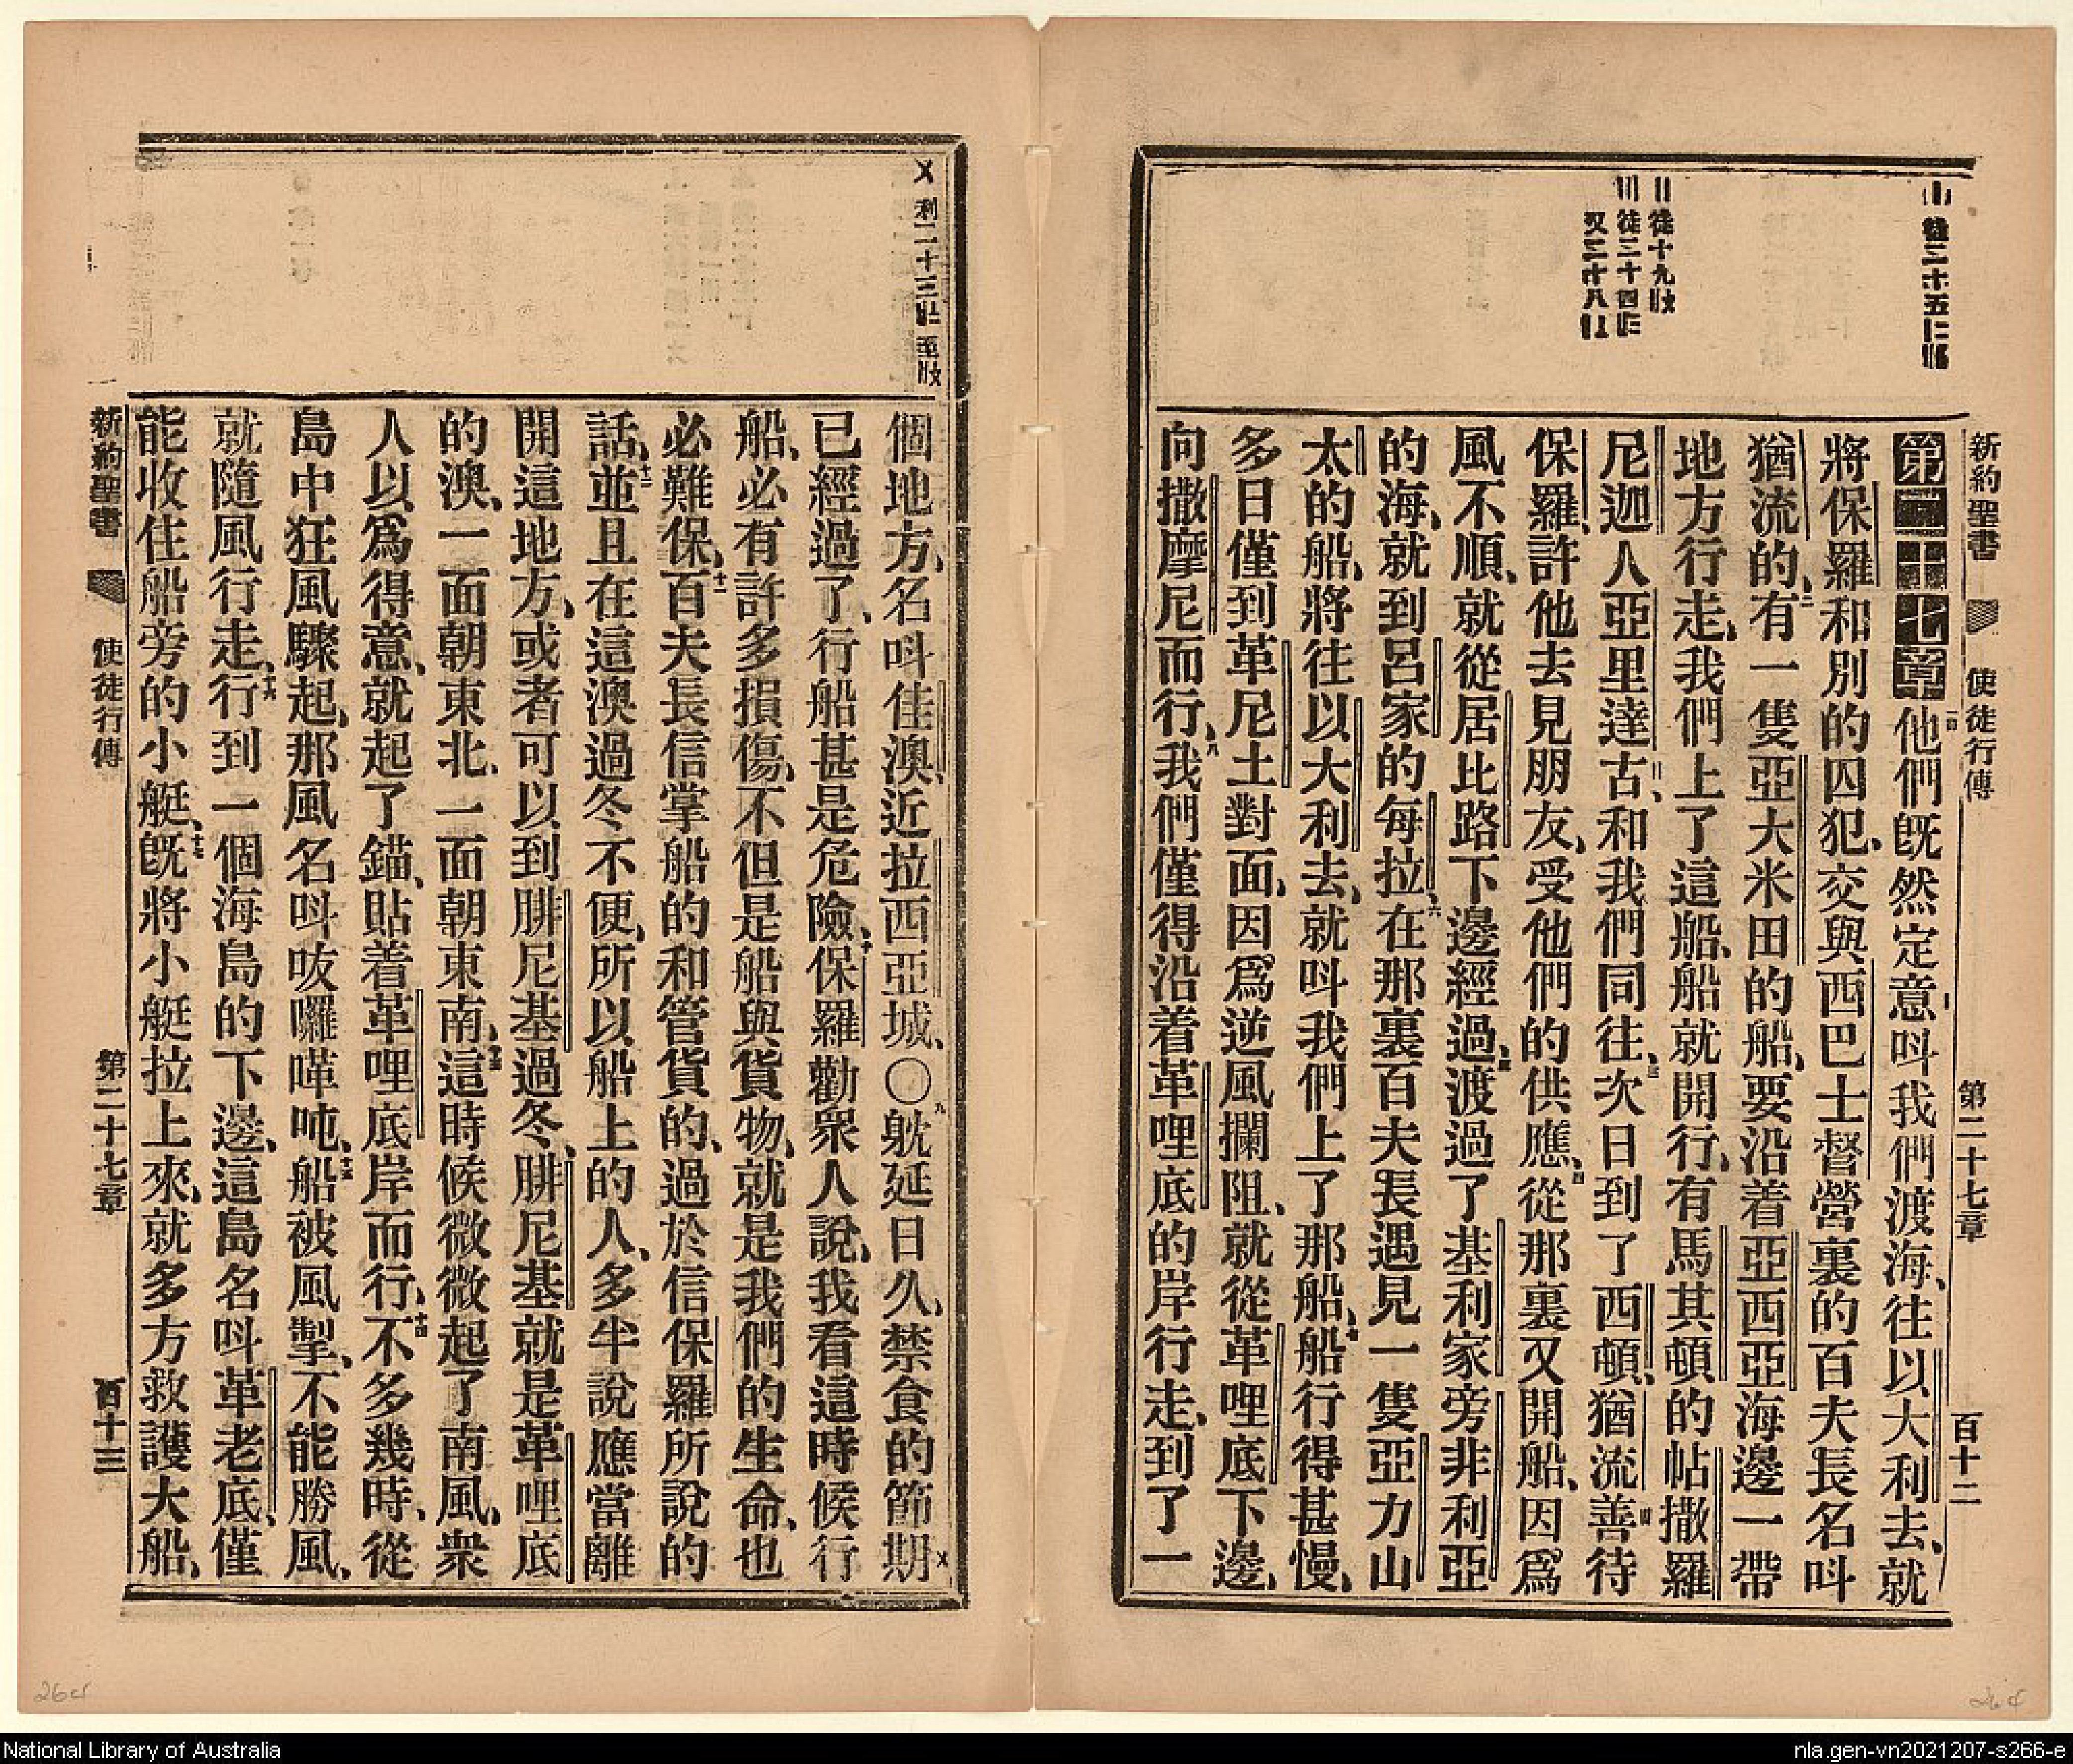 新約聖書 使徒行傳 第二十七章 百十二
第二十七章他們旣然定意呌我們渡海、往以大利去、就
將保羅和別的囚犯、交與西巴士督營裏的百夫長名呌
猶流的、二有一隻亞大米田的船、要沿着亞西亞海邊一帶
地方行走、我們上了這船、船就開行、有馬其頓的帖撒羅
尼迦人亞里達古、〢和我們同往、三次日到了西頓、猶流善待
保羅、許他去見朋友、受他們的供應、四從那裏又開船、因爲
風不順、就從居比路下邊經過、五渡過了基利家旁非利亞
的海、就到呂家的每拉、六在那裏百夫長遇見一隻亞力山
太的船、將往以大利去、就呌我們上了那船、七船行得甚慢、
多日僅到革尼土對面、因爲逆風攔阻、就從革哩底下邊、
向撒摩尼而行、八我們僅得沿着革哩底的岸行走、到了一
〢 徒十九
〣 徒二十四
個地方、名呌佳澳、近拉西亞城、〇九躭延日久、禁食的節期〤
已經過了、行船甚是危險、十保羅勸衆人說、我看這時候行
船、必有許多損傷、不但是船與貨物、就是我們的生命、也
必難保、十一百夫長信掌船的和管貨的、過於信保羅所說的
話、十二並且在這澳過冬不便、所以船上的人、多半說應當離
開這地方、或者可以到腓尼基過冬、腓尼基就是革哩底
的澳、一面朝東北、一面朝東南、十三這時候微微起了南風、衆
人以爲得意、就起了錨、貼着革哩底岸而行、十四不多幾時、從
島中狂風驟起、那風名呌㕹囉嘩吨、十五船被風掣、不能勝風、
就隨風行走、十六行到一個海島的下邊、這島名呌革老底、僅
能收住船旁的小艇、十七旣將小艇拉上來、就多方救護大船、
新約聖書 使徒行傳 第二十七章 百十三
〤 利二十三
264
264
National Library of Australia
nla.gen-vn2021207-s266-e